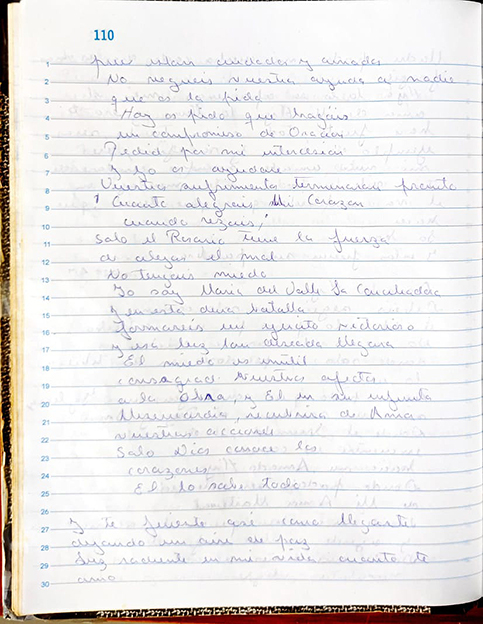 110
pues están cuidados y amados
No negueis vuestra ayuda a nadie
que os la pida
Hoy os pido que hagáis
un compromiso de Oración
Pedid por mi intercesión
y Yo os ayudaré
Vuestro sufrimiento terminará pronto
¡Cuanto alegrais Mi Corazon
cuando rezais!
Solo el Rosario tiene la fuerza
de alejar el mal
No tengais miedo
Yo soy Maria del Valle la
y en esta dura batalla
formareis un victorioso
y esa luz tan llegara
El miedo es inutil
consagrad vuestros afectos
a la Obra, y El en su infinita
Misericordia, de Amor
vuestras acciones
Solo Dios conoce los
corazones
El lo sabe todo
Y te fuiste asi como llegaste
dejando un aire de paz
Luz en mi vida cuanto te
amo
1
2
3
4
5
6
7
8
9
10
11
12
13
14
15
16
17
18
19
20
21
22
23
24
25
26
27
28
29
30